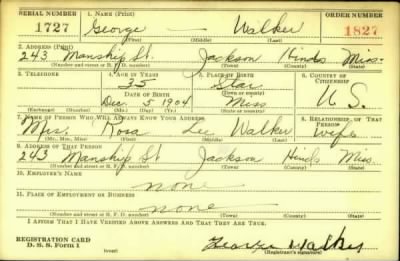 SERIAL NUMBER 1. NAME (Print) ORDER NUMBER
1727 George — Walker 1827
(First) (Middle) (Last)
2. ADDRESS (Print)
243 Manship St. Jackson Hinds Miss.
(Number and street or R. F. D. number) (Town) (County) (State)
3. TELEPHONE 4. AGE IN YEARS 5. PLACE OF BIRTH 6. COUNTRY OF CITIZENSHIP
35 Star
DATE OF BIRTH (Town or county)
Dec 5 1904 Miss U S.
(Exchange) (Number) (Mo.) (Day) (Yr.) (State or country)
7. NAME OF PERSON WHO WILL ALWAYS KNOW YOUR ADDRESS 8. RELATIONSHIP OF THAT PERSON
Mrs. Rosa Lee Walker wife
(Mr., Mrs., Miss) (First) (Middle) (Last)
9. ADDRESS OF THAT PERSON
243 Manship St Jackson Hinds Miss.
(Number and street or R. F. D. number) (Town) (County) (State)
10. EMPLOYER'S NAME
none
11. PLACE OF EMPLOYMENT OR BUSINESS
none
(Number and street or R. F. D. number) (Town) (County) (State)
I AFFIRM THAT I HAVE VERIFIED ABOVE ANSWERS AND THAT THEY ARE TRUE.
REGISTRATION CARD
D. S. S. Form 1 (over) George Walker
(Registrant's signature)